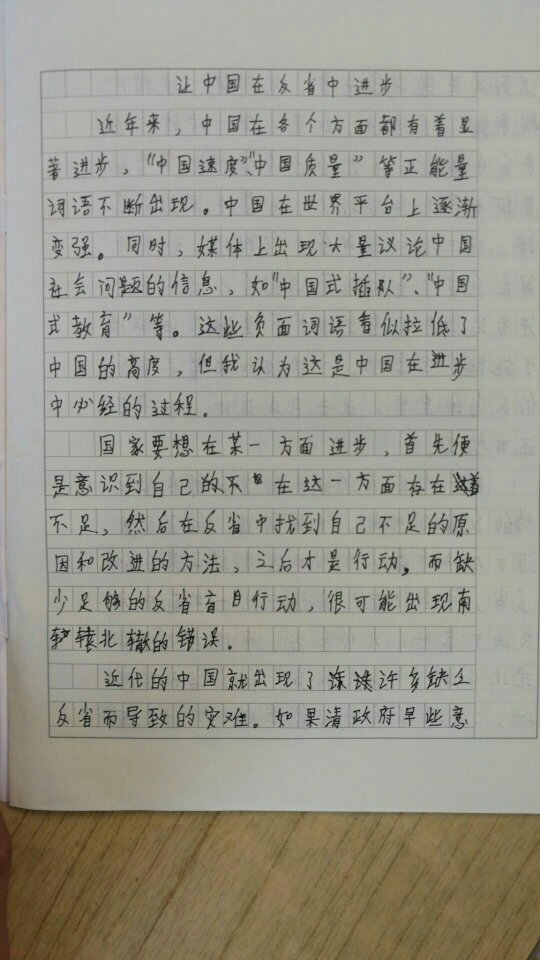 让中国在反省中进步
近年来，中国在各个方面都有着显
著进步，“中国速度”、“中国质量”等正能量
词语不断出现。中国在世界平台上逐渐
变强。同时，媒体上出现大量议论中国
社会问题的信息，如“中国式插队”、“中国
式教育”等。这些负面词语看似拉低了
中国的高度，但我认为这是中国在进步
中必经的过程。
国家要想在某一方面进步，首先便
是意识到自己的不在这一方面存在着
不足，然后在反省中找到自己不足的原
因和改进的方法，之后才是行动。而缺
少足够的反省盲目行动，很可能出现南
辕北辙的错误。
近代的中国就出现了许多缺乏
反省而导致的灾难。如果清政府早些意